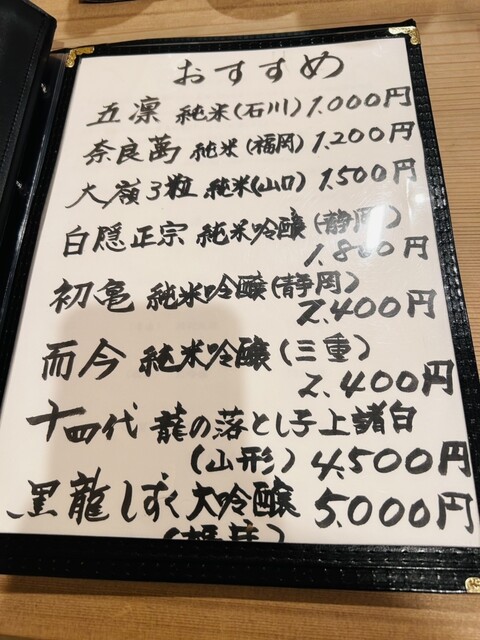 おすすめ
五凛 純米(石川) 1.000円
奈良萬 純米(福岡) 1.200円
大嶺3粒 純米(山口) 1.500円
白隠正宗 純米吟醸(静岡)
1.800円
初亀 純米吟醸(静岡)
2.400円
而今 純米吟醸(三重)
2.400円
十四代 龍の落とし子上諸白
(山形) 4.500円
黒龍しずく大吟醸 5.000円